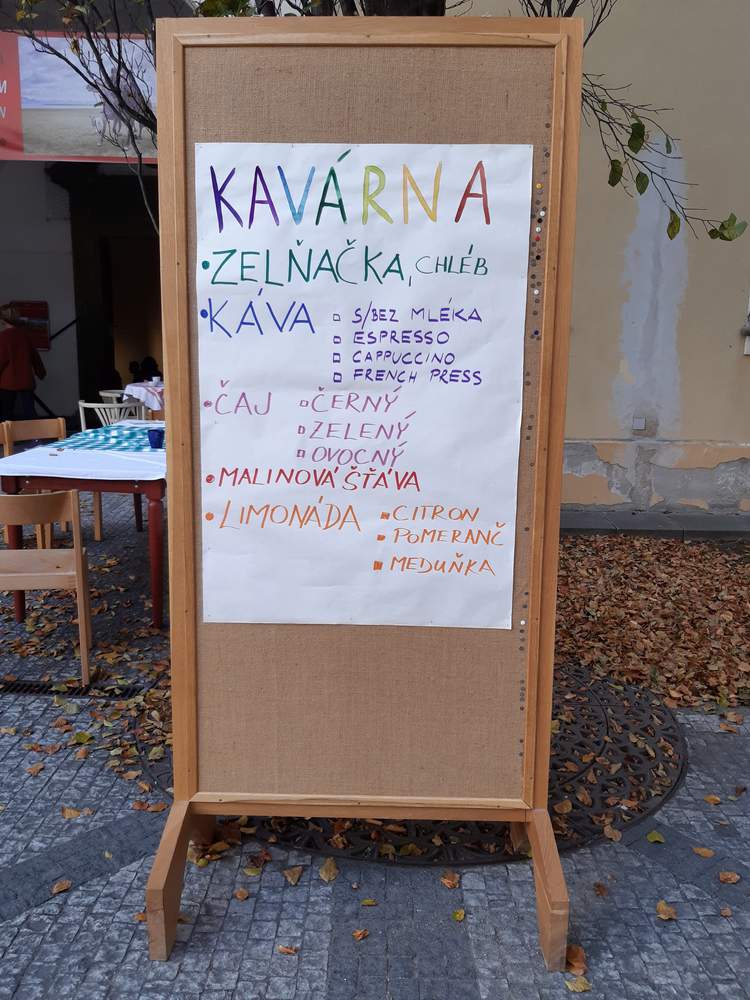 M
N
KAVÁRNA
• ZELŇAČKA, CHLÉB
• KÁVA □ S/BEZ MLÉKA
□ ESPRESSO
□ CAPPUCCINO
□ FRENCH PRESS
• ČAJ □ ČERNÝ
□ ZELENÝ
□ OVOCNÝ
• MALINOVÁ ŠŤÁVA
• LIMONÁDA ▪ CITRON
▪ POMERANČ
▪ MEDUŇKA